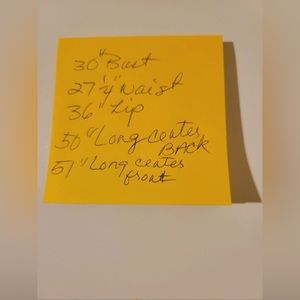 30" Bust
27 1/4" Waist
36" Lip
50" Long coates
BACK
51" Long ceates
front